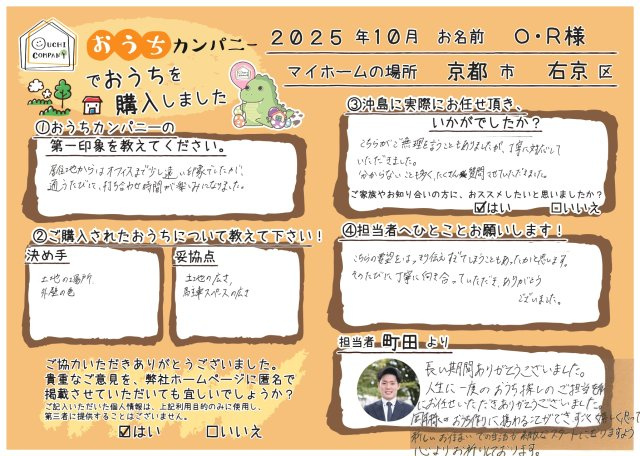 OUCHI
COMPANY
おうちカンパニー
でおうちを
購入しました
2025 年 10 月 お名前 O・R様
マイホームの場所 京都 市 右京 区
①おうちカンパニーの
第一印象を教えてください。
居住地からはオフィスまで少し遠い印象でしたが、
通うたびに、打ち合わせ時間が楽しみになりました。
②ご購入されたおうちについて教えて下さい！
決め手
土地の場所
外壁の色
妥協点
土地の広さ
駐車スペースの広さ
③沖島に実際にお任せ頂き、
いかがでしたか？
こちらがご無理を言うこともありましたが、丁寧に対応して
いただきました。
分からないことも多く、たくさん質問させていただきました。
ご家族やお知り合いの方に、おススメしたいと思いましたか？
☑はい □いいえ
④担当者へひとことお願いします！
こちらの要望をはっきり伝えられてしまうこともあったかと思います。
そのたびに丁寧に向き合っていただき、ありがとう
ございました。
ご協力いただきありがとうございました。
貴重なご意見を、弊社ホームページに匿名で
掲載させていただいても宜しいでしょうか？
ご記入いただいた個人情報は、上記利用目的のみに使用し、
第三者に提供することはございません。
☑はい □いいえ
担当者 町田 より
長い期間ありがとうございました。
人生に一度のおうち探しのご担当を
にお任せいただきありがとうございました。
のお手伝いに携わることができすごく嬉しく思って
新しいお住まいでの生活が素敵なスタートになりますよう
心よりお祈りしております。